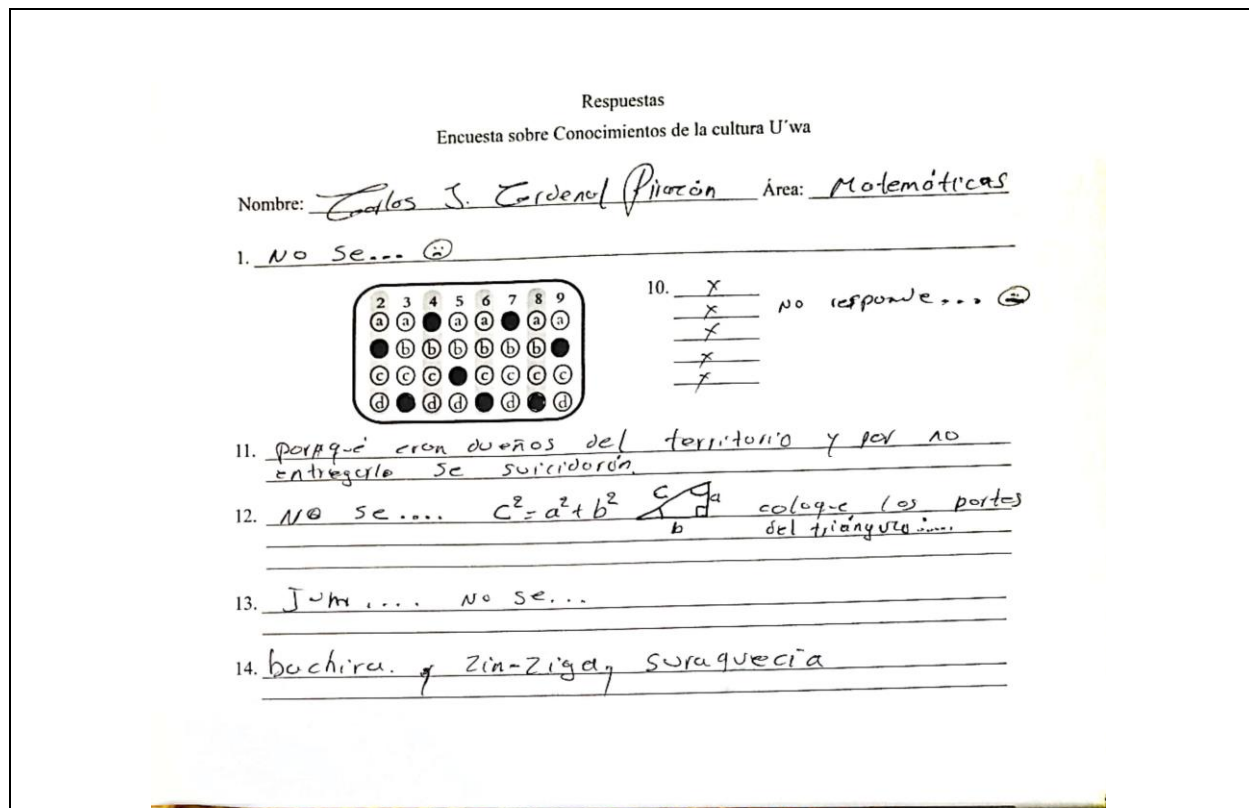 Respuestas
Encuesta sobre Conocimientos de la cultura U´wa
Nombre: Carlos J. Cardenal Área: Matemáticas
1. No se...
2 3 4 5 6 7 8 9
a a a a a a
b b b b b b
c c c c c c c
d d d d d
10. x no responde...
x
x
x
x
11. porqué eran dueños del territorio y por no
entregarlo se suicidarón.
12. No se.... c²=a²+b² c a b coloque los partes
del triángulo....
13. Jum.... No se...
14. bachira. y Zin-Ziga, suraquecia